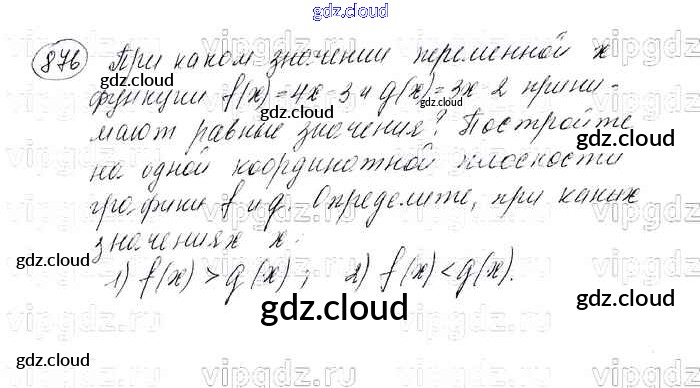 gdz.cloud
876 При каком значении переменной x
функции f(x)=4x-3 и g(x)=3x-2 прини-
мают равные значения? Постройте
на одной координатной плоскости
графики f и g. Определите, при каких
значениях x:
1) f(x) > g(x); 2) f(x) < g(x).
gdz.cloud
gdz.cloud
gdz.cloud
gdz.cloud
gdz.cloud
gdz.cloud
gdz.cloud
gdz.cloud
gdz.cloud